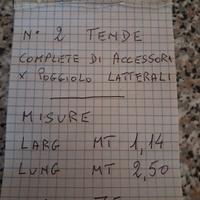 N° 2 TENDE
COMPLETE DI ACCESSORI
X POGGIOLO LATTERALI
MISURE
LARG MT 1,14
LUNG MT 2,50